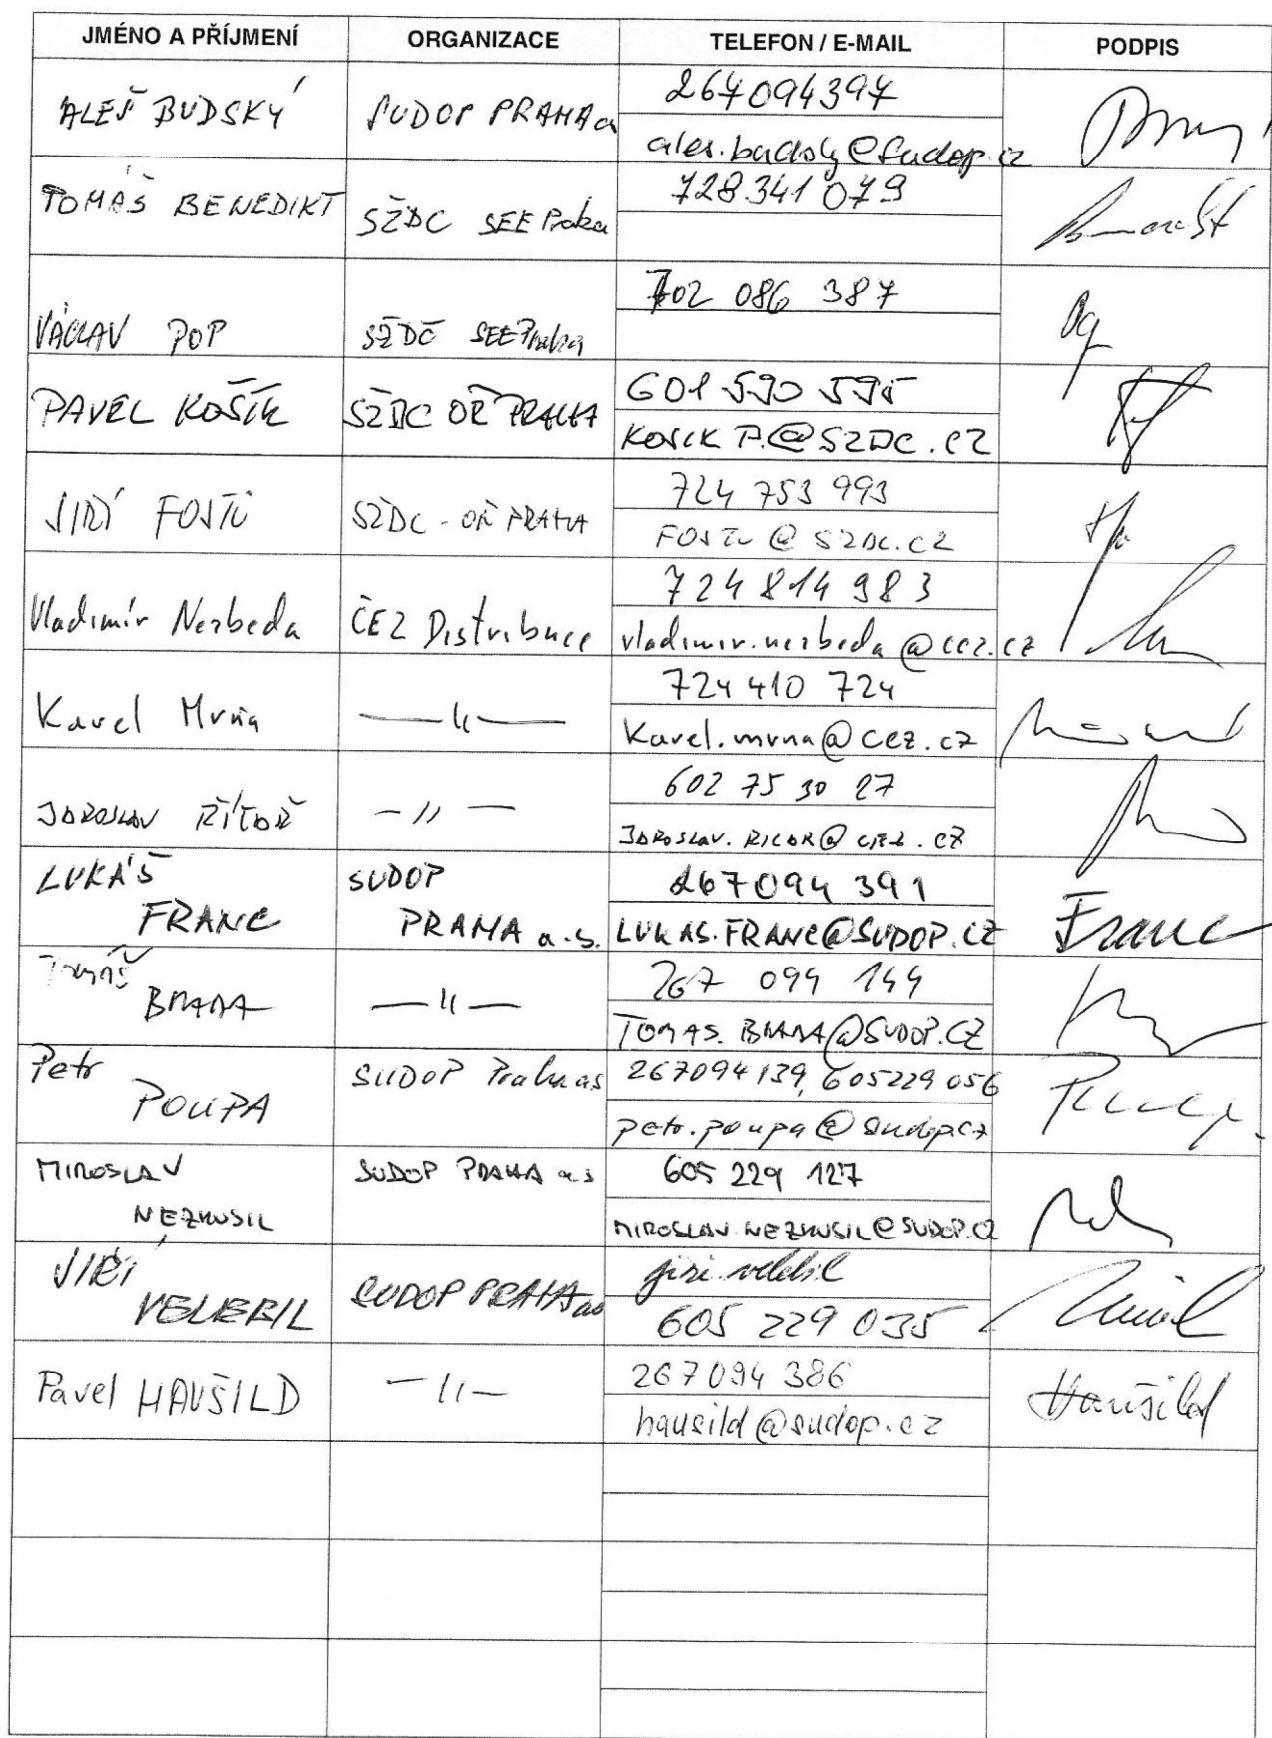 JMÉNO A PŘÍJMENÍ ORGANIZACE TELEFON / E-MAIL PODPIS
ALEŠ BUDSKÝ SUDOP PRAHA a 267094397
ales.budsky@sudop.cz
TOMÁŠ BENEDIKT SŽDC SEE Praha 728 341 079
VÁCLAV POP SŽDC SEE Praha 702 086 387
PAVEL KOŠÍK SŽDC OŘ PRAHA 601 590 595
KOSIK P.@SZDC.CZ
JIŘÍ FOJTŮ SŽDC - OŘ PRAHA 724 753 993
FOJTU @ SZDC.CZ
Vladimír Nezbeda ČEZ Distribuce 724 814 983
vladimir.nezbeda@cez.cz
Karel Mrňa —〃— 724 410 724
Karel.mrna@cez.cz
JAROSLAV —〃— 602 75 30 27
JAROSLAV. RICAR@ CEZ.CZ
LUKÁŠ FRANC SUDOP PRAHA a.s. 267094 391 Franc
LUKAS.FRANC@SUDOP.CZ
TOMÁŠ —〃— 267 094 144
Petr POUPA SUDOP Praha as 267094139, 605229 056
petr.poupa@sudop.cz
MIROSLAV NEZKUSIL SUDOP PRAHA a.s 605 229 127
MIROSLAV.NEZKUSIL@SUDOP.CZ
JIŘÍ VELEBIL SUDOP PRAHA as jiri.velebil
605 229 035
Pavel HAUŠILD —〃— 267094 386 Haušild
hausild@sudop.cz